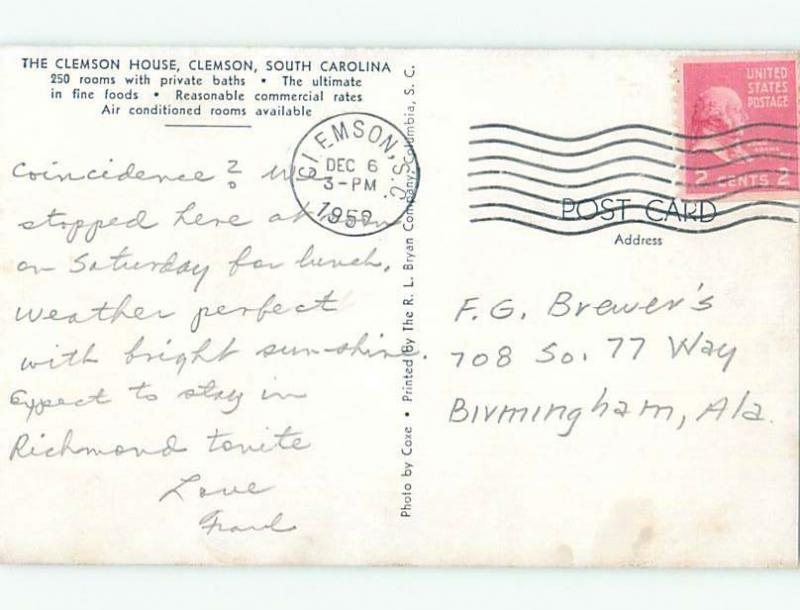 THE CLEMSON HOUSE, CLEMSON, SOUTH CAROLINA
250 rooms with private baths • The ultimate
in fine foods • Reasonable commercial rates
Air conditioned rooms available
Coincidence? We
stopped here at noon
on Saturday for lunch.
Weather perfect
with bright sun-shine.
Expect to stay in
Richmond tonite
Love
CLEMSON, S.C.
DEC 6
3-PM
1952
Photo by Coxe • Printed By The R. L. Bryan Company, Columbia, S. C.
UNITED
STATES
POSTAGE
2 CENTS 2
POST CARD
Address
F.G. Brewer's
708 So. 77 Way
Birmingham, Ala.